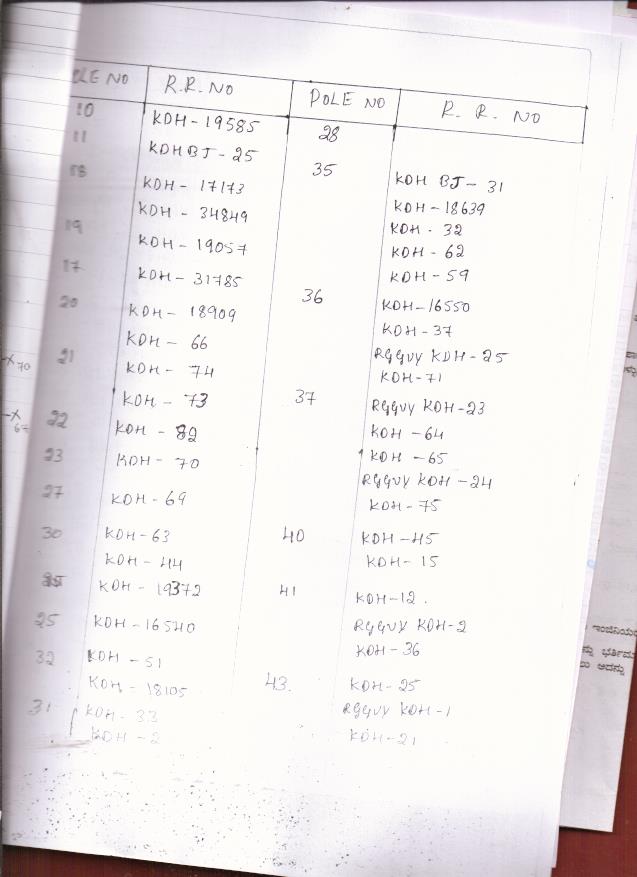 POLE NO R.R.NO POLE NO R. R. NO
10 KDH-19585 28
11 KDHBJ-25
18 KDH-17173 35 KDH BJ-31
KDH-34849 KDH-18639
19 KDH-19057 KDH-32
KDH-62
17 KDH-31785 KDH-59
20 KDH-18909 36 KDH-16550
KDH-66 KDH-37
21 KDH-74 RGGVY KDH-25
KDH-71
KDH-73 37 RGGVY KDH-23
22 KDH-82 KDH-64
23 KDH-70 KDH-65
RGGVY KDH-24
27 KDH-69 KDH-75
30 KDH-63 40 KDH-45
KDH-44 KDH-15
KDH-19372 41 KDH-12.
25 KDH-16540 RGGVY KDH-2
32 KDH-51 KDH-36
KDH-18105 43. KDH-25
31 KDH-33 RGGVY KDH-1
KDH-2 KDH-21
-X70
-X
ಇಂಜಿನಿಯರ
ಭರ್ತಿಮಾ
ಅದನ್ನು